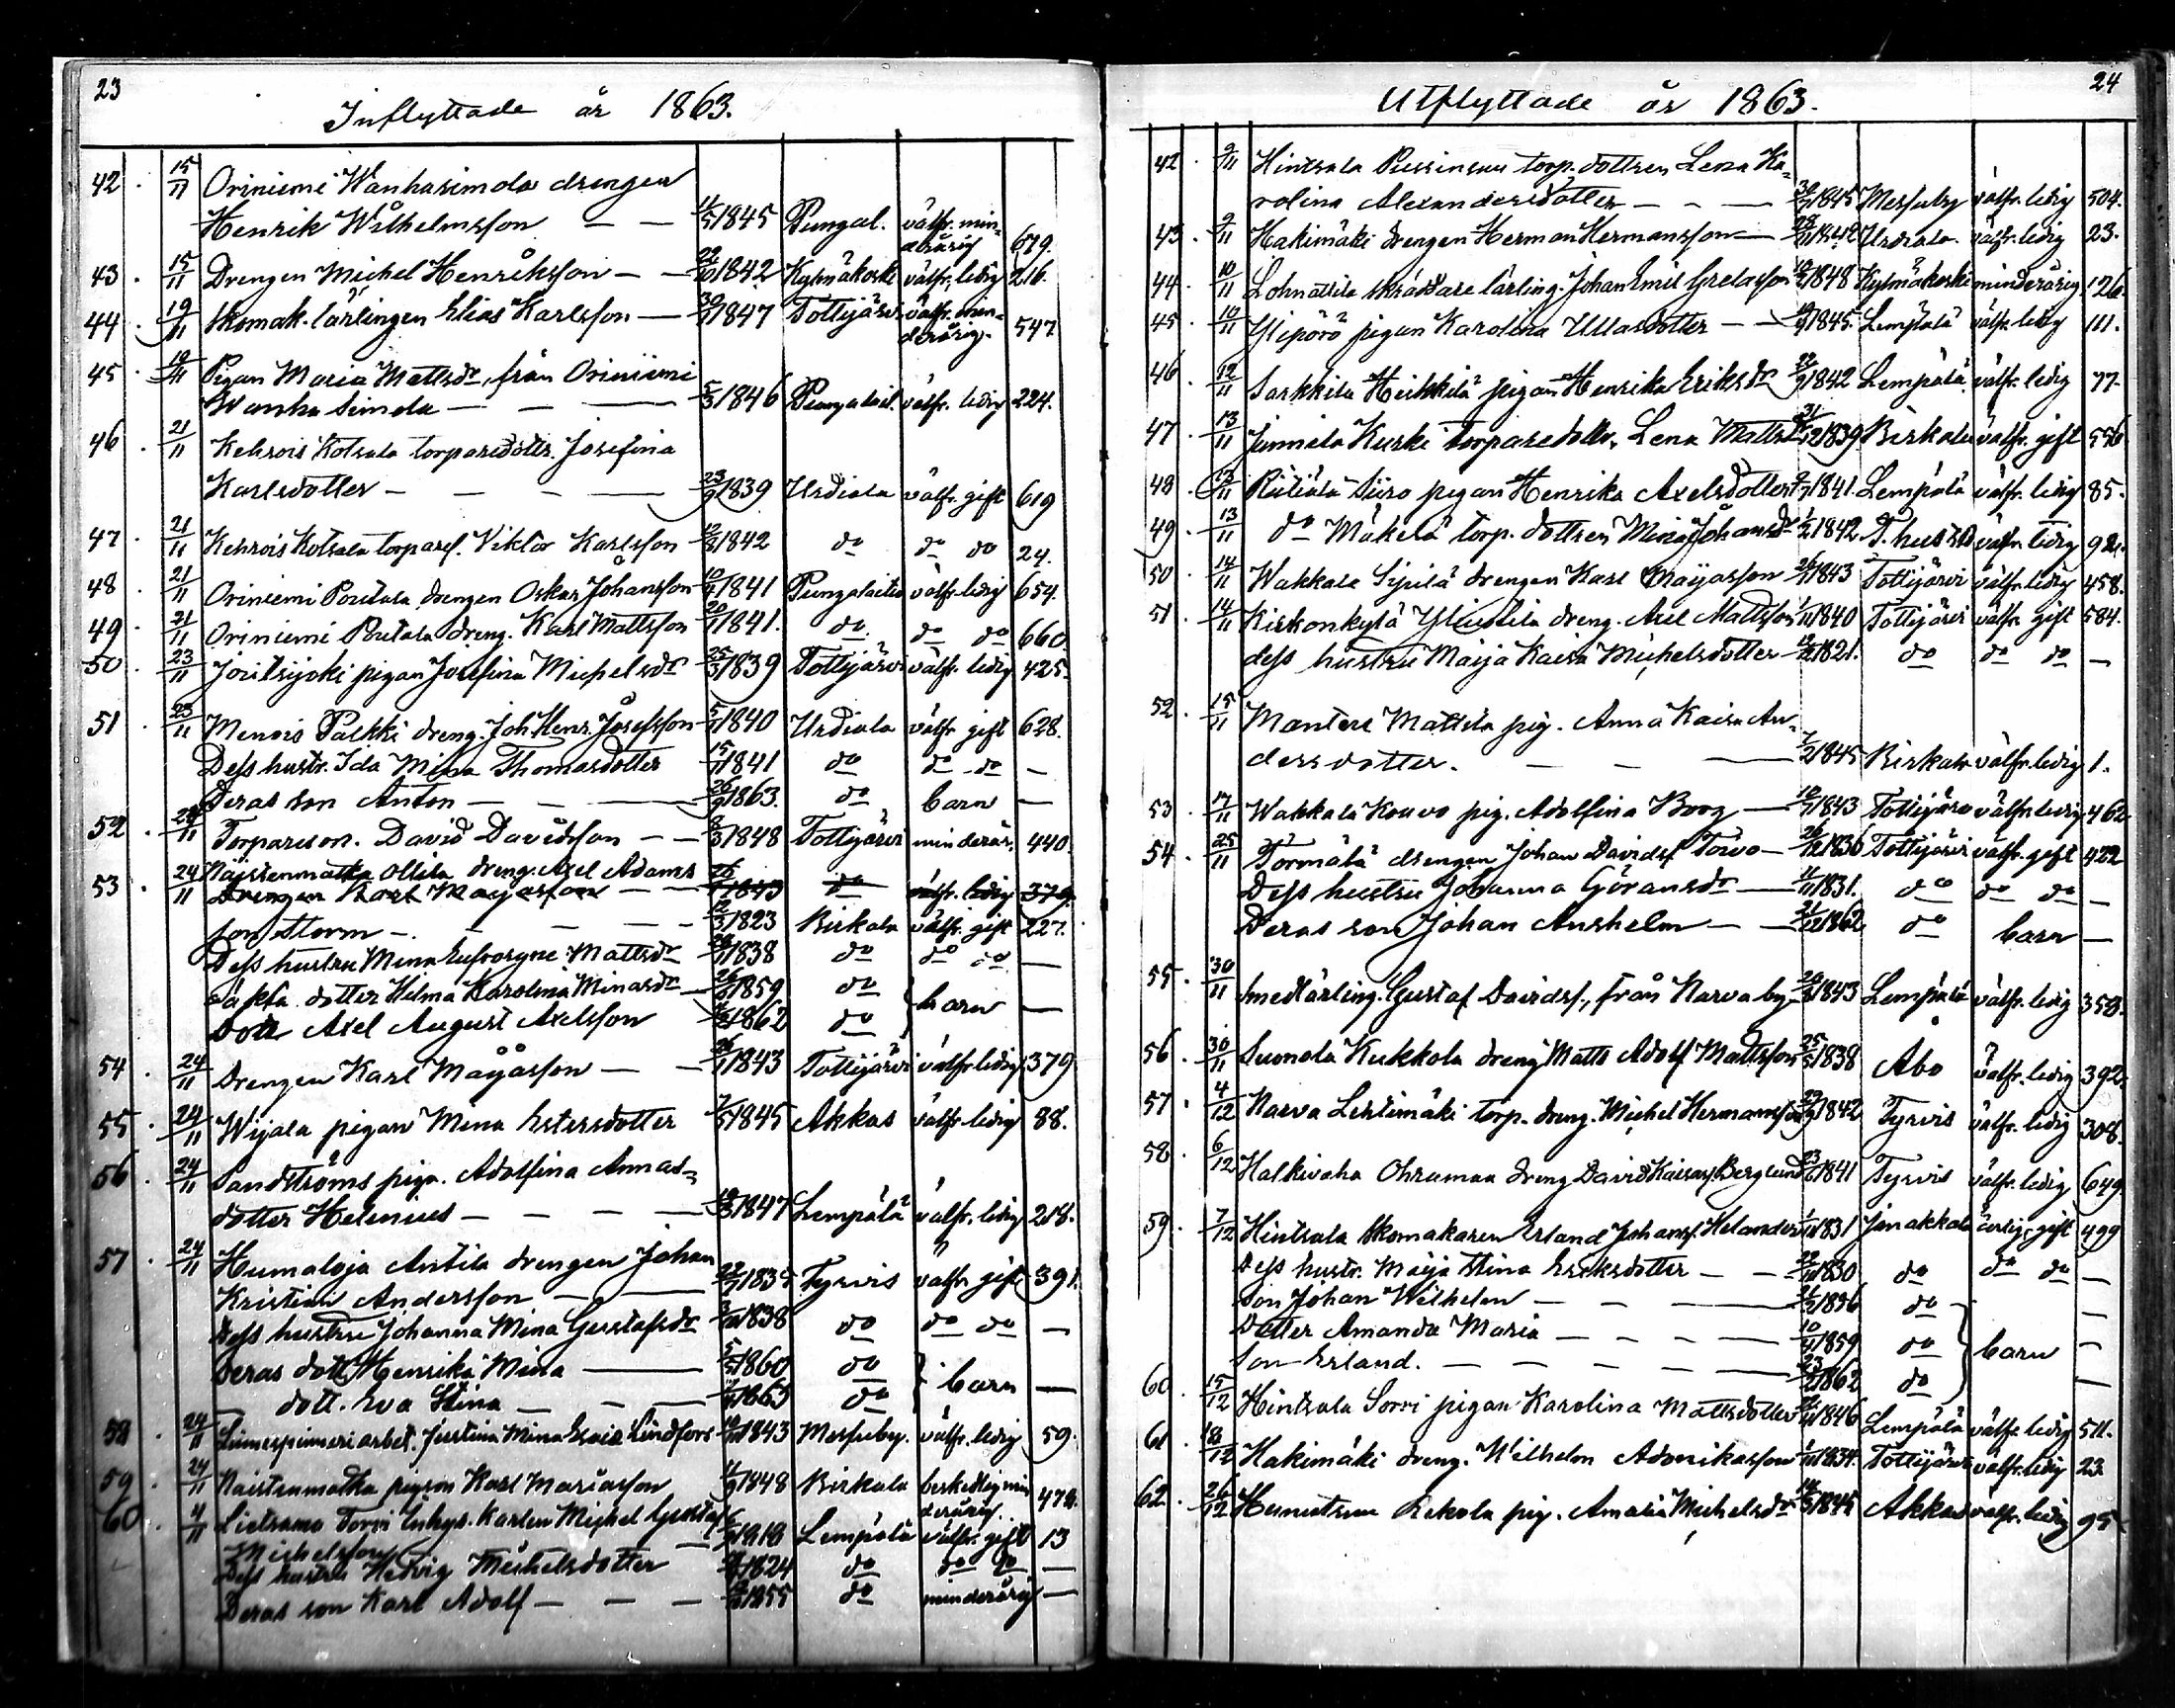 23
Inflyttade år 1863.
42 . 15/11 Oriniemi Wanhasimola drengen
Henrik Wilhelmsson — — 1845 Pungal. välfr. min-
derårig 679.
43 . 15/11 Drengen Michel Henriksson — — 1842 Kylmäkoski välfr. ledig 216.
44 . 19/11 Skomak. lärlingen Elias Karlsson — 1847 Tottijärvi välfr. min-
derårig. 547
45 . 19/11 Pigan Maria Mattsdr, från Oriniemi
Wanha Simola — — — 5/3 1846 Pungalait. välfr. ledig 224.
46 . 21/11 Kehrois Kotsala torparedottr. Josefina
Karlsdotter — — — — 23/9 1839 Urdiala välfr. gift 619
47 . 21/11 Kehrois Kotsala torpares. Viktor Karlsson 1842 do do do 24.
48 . 21/11 Oriniemi Poutala drengen Oskar Johansson 1841 Pungalaitio välfr. ledig 654.
49 . 21/11 Oriniemi Poutala dreng. Karl Mattsson 1841. do. do do 660.
50 . 23/11 Jõutsijoki pigan Josefina Michelsdr 25/3 1839 Tottijärvi välfr. ledig 425.
51 . 23/11 Menois Palkki dreng. Joh. Henr. Josefsson 1840 Urdiala välfr gift 628.
Dess hustr. Ida Mina Thomasdotter 1841 do do - do —
Deras son Anton — — — 1863. do barn —
52 . 11 Torpareson. David Davidsson — — 8/3 1848 Tottijärvi minderår. 440.
Naistenmatka Ollila dreng. Axel Adams
53 . 24/11 Drengen Karl Majasson — — 1843 do välfr. ledig 379.
son Storm — — — — 1823 Birkala välfr. gift 227.
Dess hustru Mina Eufrosyne Mattsdr 1838 do do do —
oäkta dotter Helma Karolina Minasdr 1859 do } barn —
Dott Axel August Axelsson 1862 do
54 . 24/11 Drengen Karl Majasson — — 1843 Tottijärvi välfr ledig 379
55 . 24/11 Wijala pigan Mina Estersdotter 1845 Akkas välfr. ledig 88.
56 . 24/11 Sandströms piga. Adolfina Annas-
dotter Helenius — — — — 1847 Lempälä välfr. ledig 218.
57 . 24/11 Humaloja Anttila drengen Johan
Kristian Andersson — — 1835 Tyrvis välfr gift 391.
Dess hustru Johanna Mina Gustafsdr 1838 do do do —
Deras dott Henrika Mina — 1860 do } barn —
— dott. Eva Stina — — — 1863 do
58 . 24/11 Linnespinneri arbet. Justina Mina Lindfors 1843 Messuby. välfr. ledig 59.
59 . 24/11 Naistenmatka pigson Karl Mariasson 1848 Birkala beskedlig min
derårig.
60 . Michel Gustaf
Michelsson — 1818 Lempälä välfr. gift 13
Dess hustru Hedvig Michelsdotter 1824 do do do —
Deras son Karl Adolf — — — 1855 do minderårig —
24
Utflyttade år 1863.
42 . 9/11 Hintsala Pussinsuu torp. dottren Lena Ka-
rolina Alexandersdotter — — — 1845 Messuby välfr. ledig 504.
43 . 9/11 Hakimäki drengen Herman Hermansson — 1842 Urdiala. välfr. ledig 23.
44 . 10/11 Lohnattila skräddare lärling. Johan Emil Gretasson 1848 Kylmäkoski minderårig 126.
45 . 10/11 Ylipörö pigan Karolina Ullasdotter — — 1845. Lempälä välfr. ledig 111.
46 . 12/11 Sarkkila Heikkilä pigan Henrika Eriksdr 1842 Lempälä välfr. ledig 77.
47 . 13/11 Junnila Kurki torparedottr. Lena Mattsdr 1839 Birkala välfr. gift 556
48 . 13/11 Rätiälä Siiro pigan Henrika Axelsdotter 1841. Lempälä välfr. ledig 85.
49 . 13/11 do Mäkelä torp. dottren Mina Johansdr 1/2 1842 välfr. ledig 92.
50 . 14/11 Wakkala Sipilä drengen Karl Majasson 1843 Tottijärvi välfr. ledig 458.
51 . 14/11 Kirkonkylä dreng. Axel Mattsson 1840 Tottijärvi välfr gift 584.
dess hustru Maija Kaisa Michelsdotter 1821. do do do —
52 . 15/11 Mantere Mattila pig. Anna Kaisa An-
dersdotter. — — — 1845 Birkala välfr. ledig 1.
53 . 17/11 Wakkala Kouvo pig. Adolfina Borg — 1843 Tottijärvi välfr. ledig 462.
54 . 25/11 Törmälä drengen Johan Davidss. Toivo — 1836 Tottijärvi välfr. gift 422
Dess hustru Johanna Göransdr — 1831. do do do —
Deras son Johan Anshelm — — 1862 do barn —
55 . 30/11 Smedlärling. Gustaf Davidss., från Narva by — 1843 Lempälä välfr. ledig 358.
56 . 30/11 Suomela Kukkola dreng Matts Adolf Mattsson 1838 Åbo välfr. ledig 392.
57 . 4/12 Narva Lehtimäki torp. dreng. Michel Hermansson 1842 Tyrvis välfr. ledig 308.
58 . 6/12 Halkivaha Ohramaa dreng David Kaisass. Berglund 1841 Tyrvis välfr. ledig 649.
59 . 7/12 Hintsala Skomakaren Erland Johanss. Helander 1831 Janakkala ärlig, gift 499
Dess hustr. Maija Stina Eriksdotter — — 1830 do do do —
Son Johan Wilhelm — — — 1856 do —
Dotter Amanda Maria — — — — 1859 do } barn —
Son Erland. — — — — — 1862 do —
60 . 15/12 Hintsala Sorri pigan Karolina Mattsdotter 1846 Lempälä välfr. ledig 511.
61 . 18/12 Hakimäki dreng. Wilhelm Adamikasson 1834. Tottijärvi välfr. ledig 23
62 . 26/12 Rekola pig. Amalia Michelsdr 1845 Akkas välfr. ledig 95